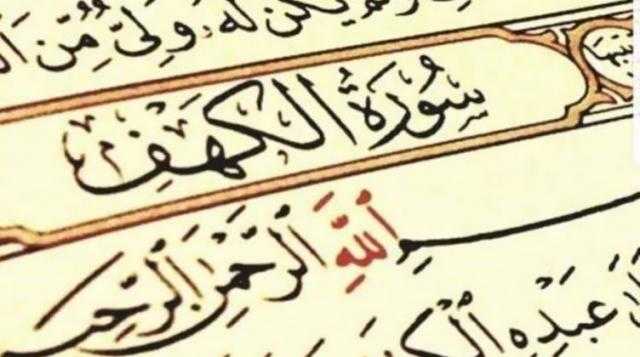 يَكُن لَّهُۥ وَلِىٌّ مِّنَ
سُورَةُ الْكَهْفِ
ٱللَّهِ ٱلرَّحْمَٰنِ ٱلرَّحِيمِ
عَبْدِهِ